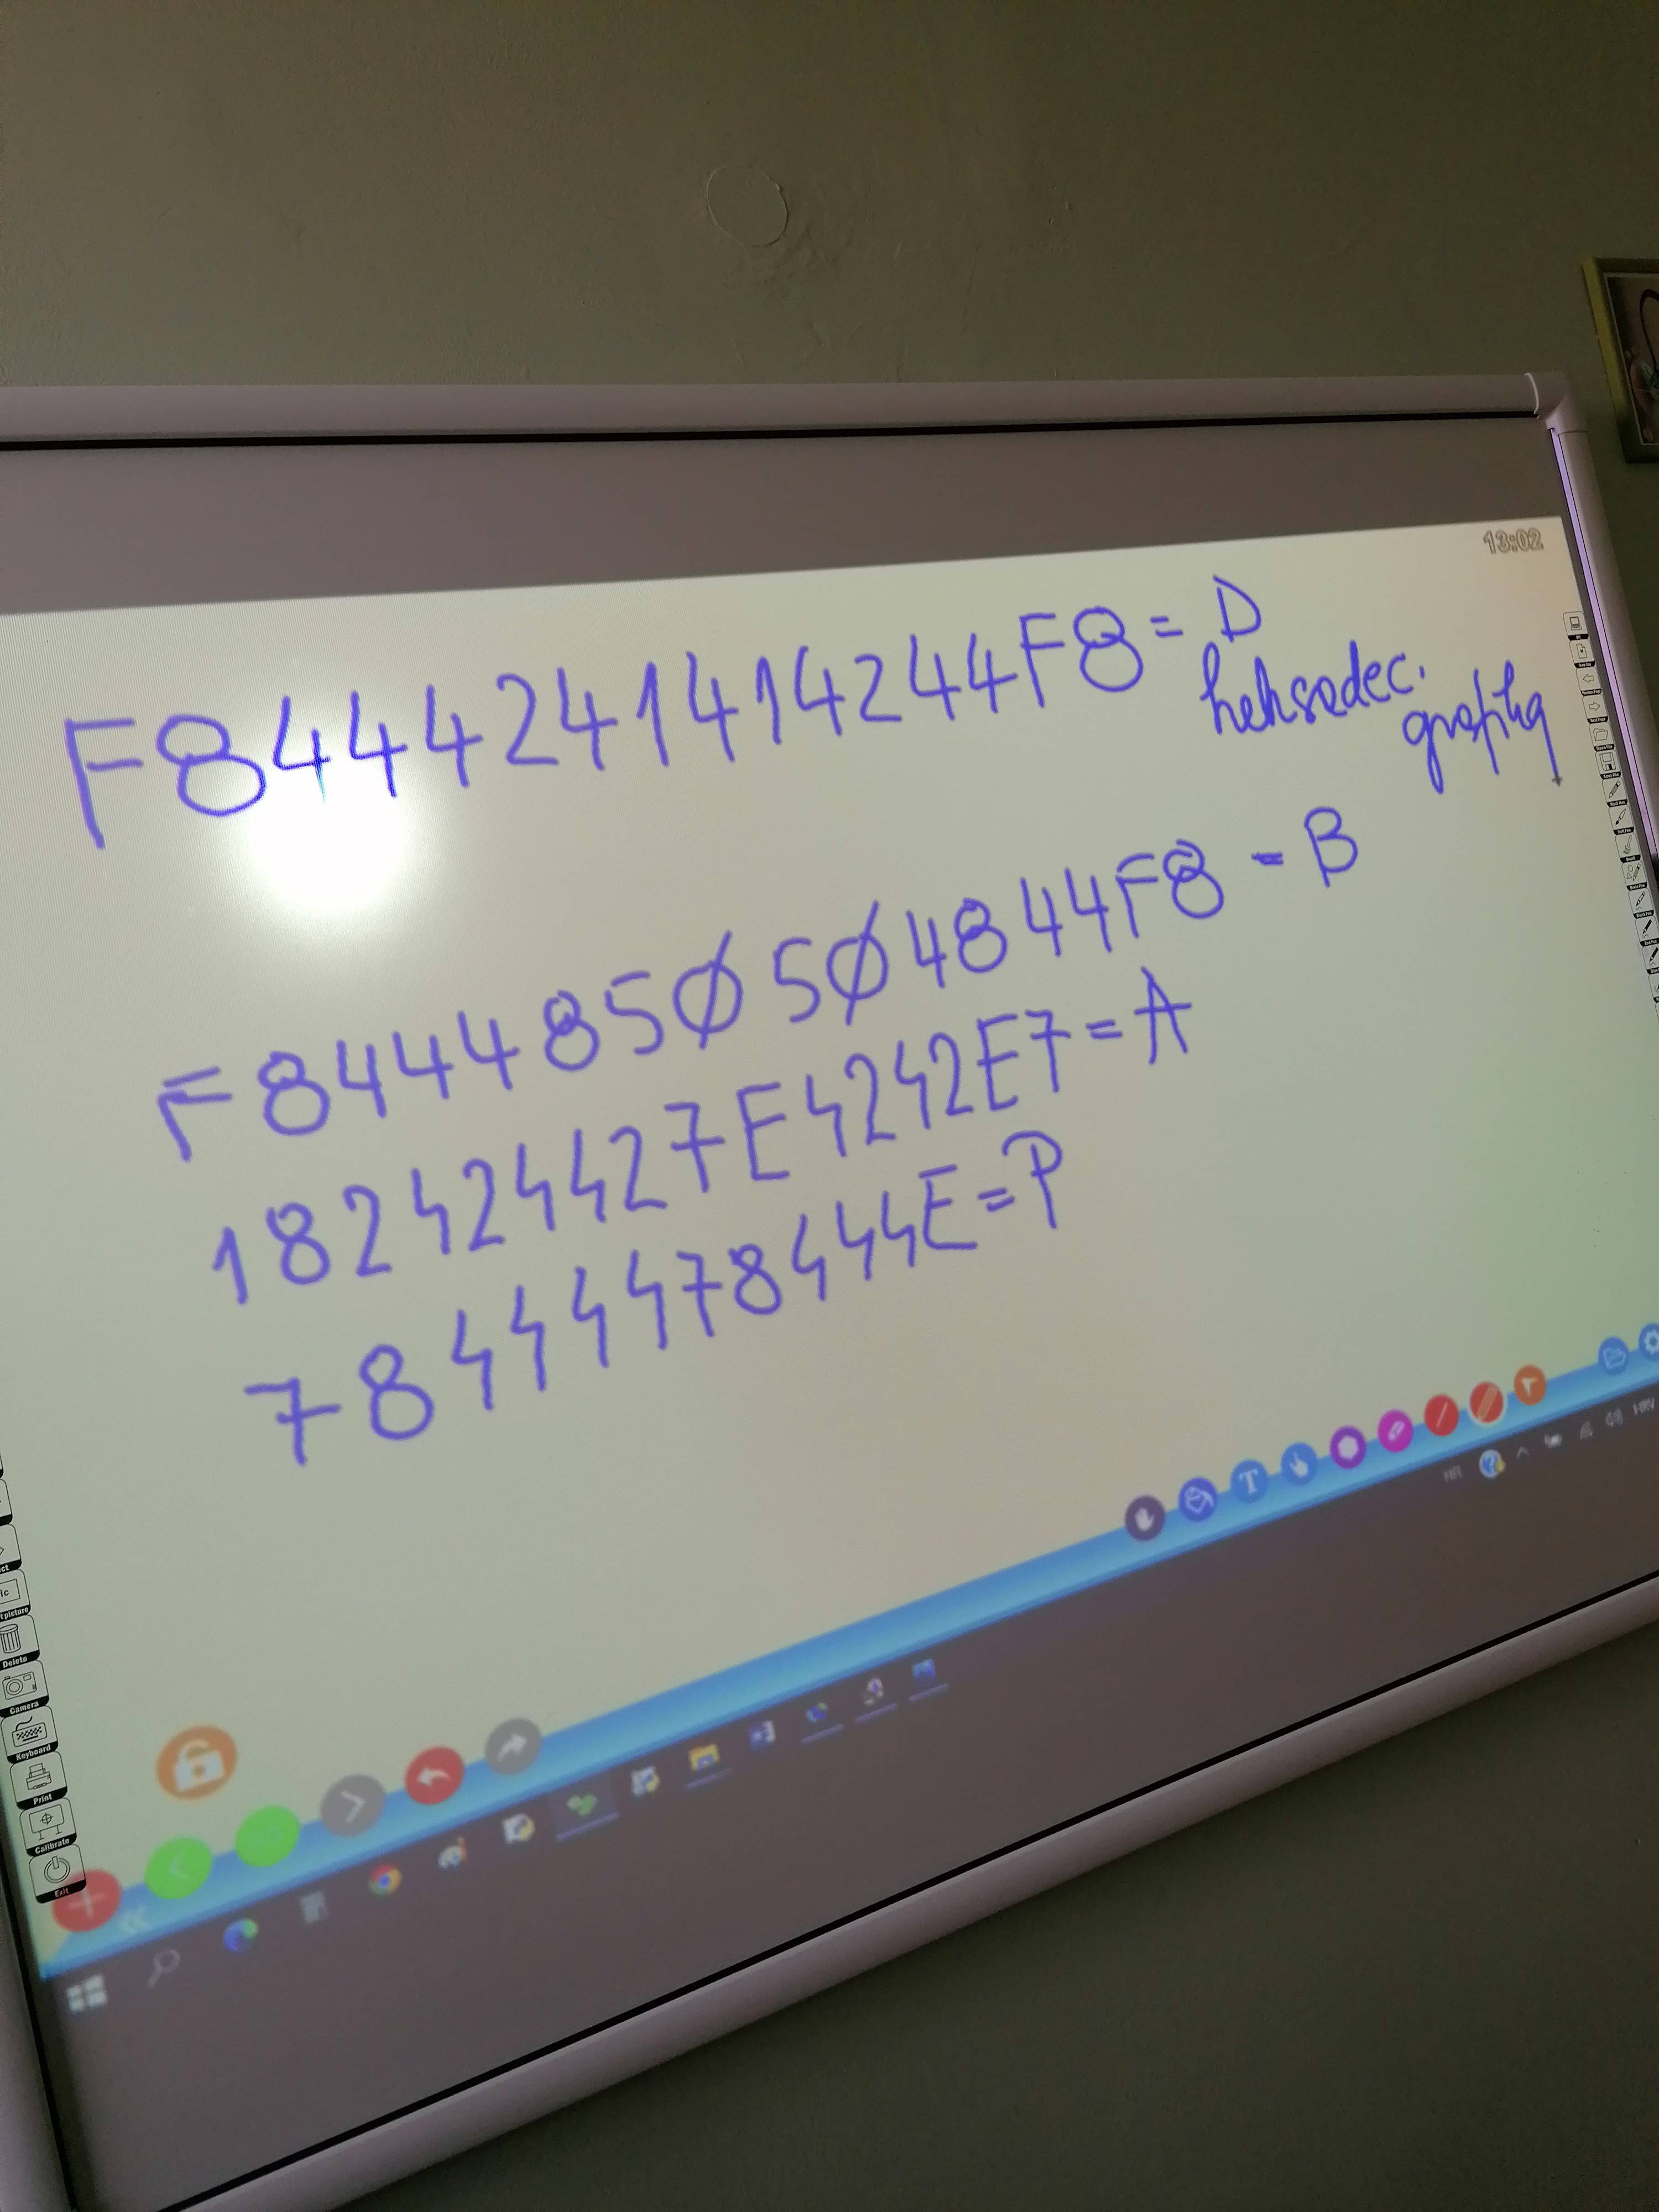 13:02
F844424141424 4F8 = D
heksadec.
grafika
F844485Ø5Ø4844F8 - B
182424427E4242E7 = A
784444478444E = P
HR
HRV
Delete
Camera
Keyboard
Print
Calibrate
Exit